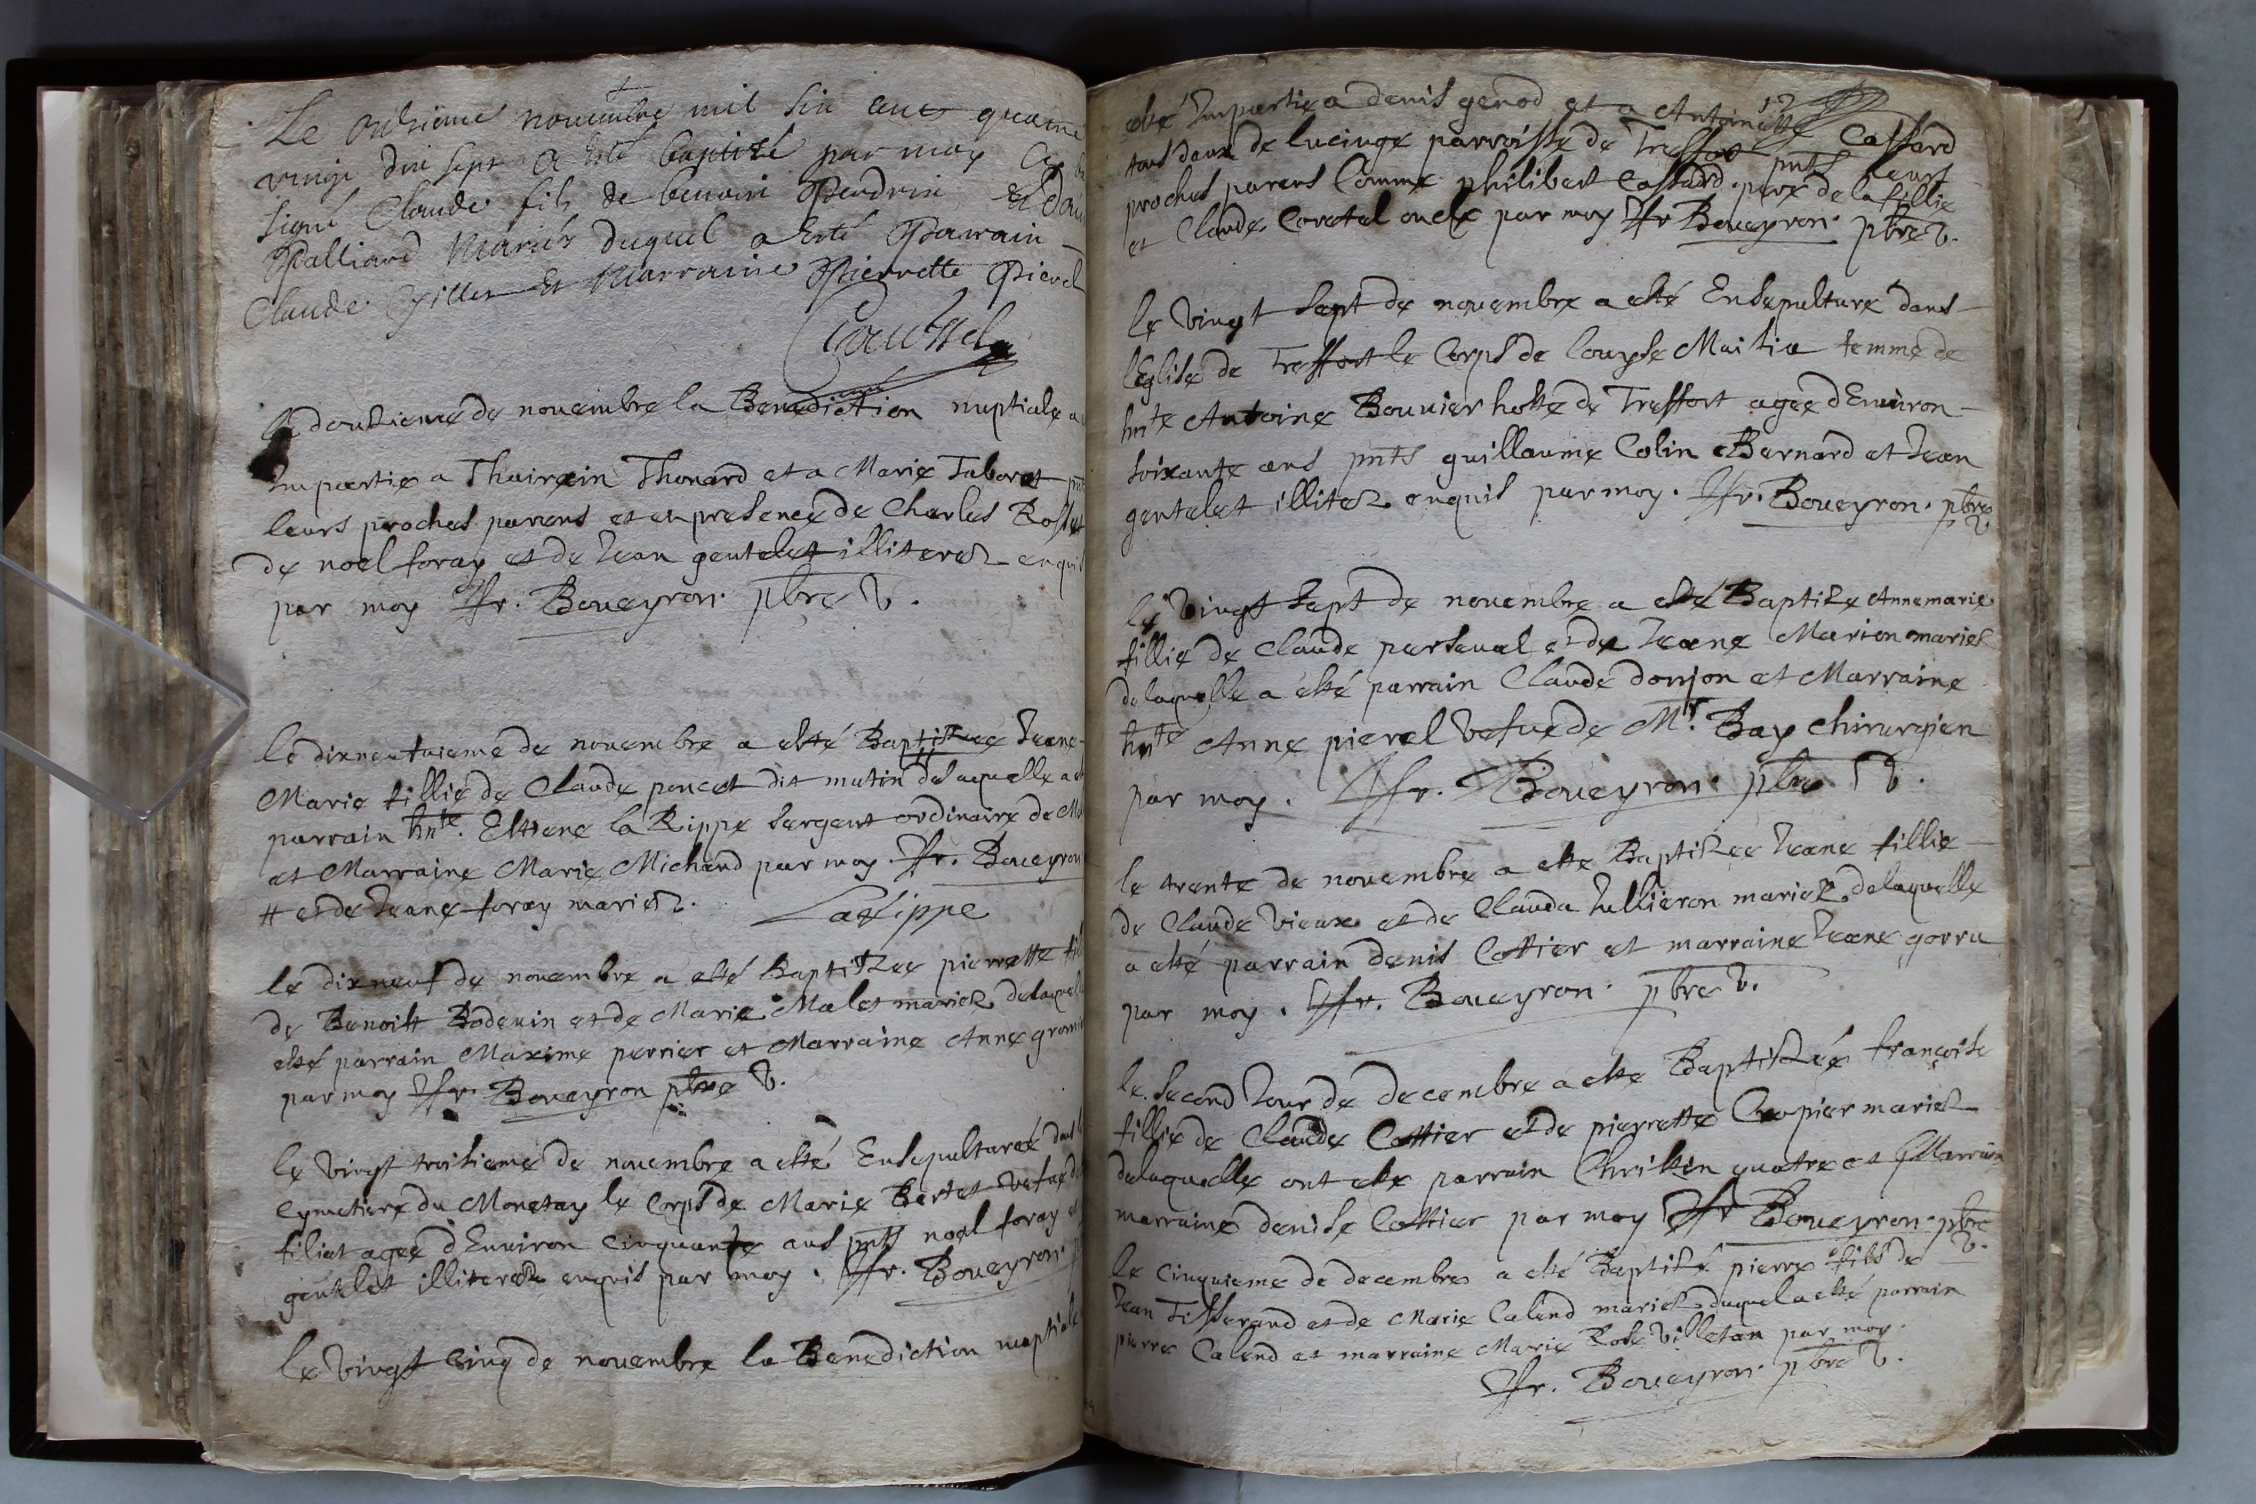 Le onzieme novembre mil six cens quatre
vingt dix sept a esté baptizé par moy
signé Claude fils de benoit Pendrin et
Palliard Mariés duquel a esté Parrain
Claude et Marraine Pierrette Pierel
le douzieme de novembre la Benediction nuptiale a
Impartie a Thonard et a Marie Taboret pnts
leurs proches parens et en presence de Charles Rosset
de noel foray et de Jean gentelet illiteres enquis
par moy Fr. Boueyron pbre V.
le dixneufuieme de novembre a esté Baptizee Jeane
Marie fillie de Claude poncet dit mutin # delaquelle a
parrain hnte. Estiene la Rippe sergent ordinaire de
et Marraine Marie Michaud par moy. Fr. Boueyron
# et de Jeane foray mariez.
LaRippe
le dixneuf de novembre a esté Baptizee pierrette
de Benoist Bodevin et de Marie Malet mariez delaquelle
esté parrain Maxime perrier et Marraine Anne
par moy Fr. Boueyron pbre V.
le vingt troisieme de novembre a esté Ensepulturée dans
Cymetiere du Monetay le Corps de Marie Bertet vefue de
filiat agee d'Environ cinquante ans pnts noel foray et
gentelet illiterez enquis par moy. Fr. Boueyron
le vingt cinq de novembre la Benediction nuptiale
esté Impartie a denis genod et a Antoinette Cassard
tous deux de lucinge parroisse de Treffort pnts leurs
proches parens Comme philibert Cassard pere de la fillie
et Claude Coretal oncle par moy Fr Boueyron pbre V.
le vingt sept de novembre a esté Ensepulture dans
l'Eglise de Treffort le Corps de louyse Maitie femme de
hnte Antoine Bouvier hoste de Treffort agee d'Environ
soixante ans pnts guillaume Colin Bernard et Jean
gentelet illitez enquis par moy. Fr. Boueyron. pbre
V.
le vingt sept de novembre a esté Baptize Annemarie
fillie de Claude perseval et de Jeane Marion mariez
delaquelle a esté parrain Claude donjon et Marraine
hnte Anne pierel vefue de Mr Bay chirurgien
par moy. Fr. Boueyron. pbre V.
le trente de novembre a esté Baptizee Jeane fillie
de Claude vieux et de Clauda Jullieron mariez delaquelle
a esté parrain denis Cottier et marraine Jeane gorru
par moy. Fr. Boueyron. pbre V.
le second Jour de decembre a esté Baptizée françoise
fillie de Claude Cottier et de pierrette Cropier mariez
delaquelle ont esté parrain Christin quatre et Marraine
marraine denise Cottier par moy Fr Boueyron. pbre
V.
le cinquieme de decembre a esté Baptizé pierre fils de
Jean Tisserand et de Marie Caland mariez duquel a esté parrain
pierre Caland et marraine Marie Rose villetan par moy.
Fr. Boueyron. pbre V.